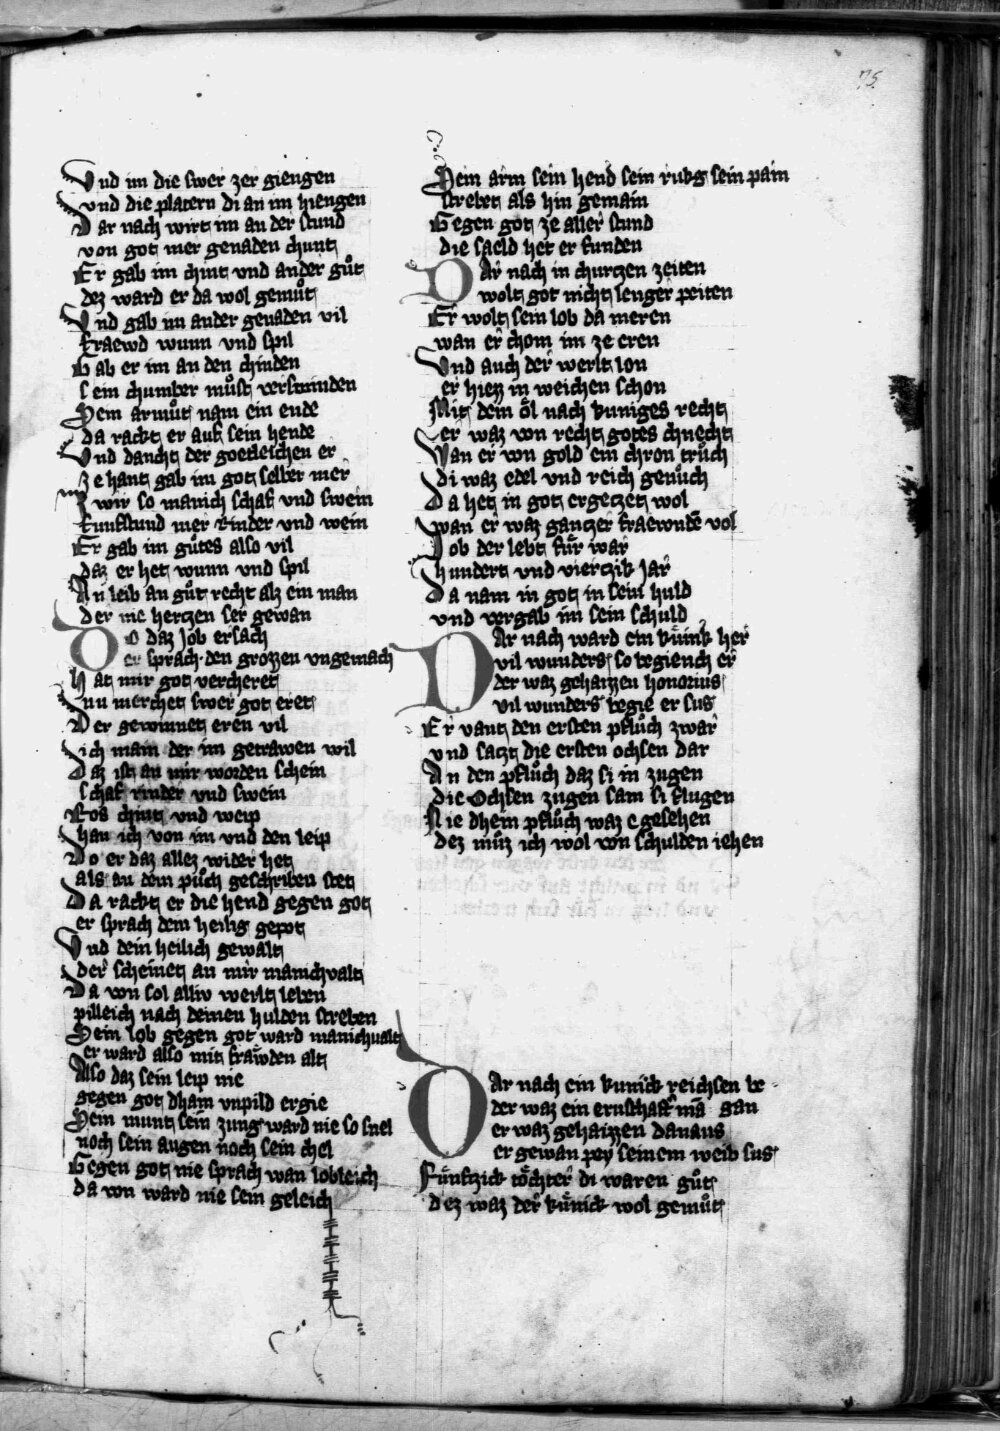 75
Vnd im die swer zer giengen
vnd die platern di an im hiengen
Dar nach wirt im an der stund
von got mer genaden chunt
Er gab im chint vnd ander guͦt
dez ward er da wol gemuͦt
Vnd gab im ander genaden vil
fraewd wunn vnd spil
Gab er im an den chinden
sein chumber muͦst verswinden
Sein armuͦt nam ein ende
da rackt er auf sein hende
Vnd dancht der goetleichen er
ze hant gab im got selber mer
Zwir so manich schaf vnd swein
funfstund mer rinder vnd wein
Er gab im guͦtes also vil
daz er het wunn vnd spil
An leib an guͦt recht alz ein man
der nie hertzen ser gewan
Do daz Job ersach
er sprach den grozzen vngemach
hat mir got vercheret
nu merchet swer got eret
Der gewinnet eren vil
ich main der im getrawen wil
Daz ist an mir worden schein
schaf rinder vnd swein
Ros chint vnd weip
han ich von im vnd den leip
Do er daz allez wider het
als an dem puͦch geschriben stet
Da rackt er die hend gegen got
er sprach dem heilig gepot
Vnd dein heilich gewalt
der scheinet an mir manichvalt
Da von sol alliv werlt leben
pilleich nach deinen hulden streben
Sein lob gegen got ward manichualt
er ward also mit frawden alt
Also daz sein leip nie
gegen got dham vnpild ergie
Sein munt sein zung ward nie so snel
noch sein augen noch sein chel
Gegen got nie sprach wan lobleich
da von ward nie sein geleich
Sein arm sein hend sein rukg sein pain
strebet als hin gemain
Gegen got ze aller stund
die saeld het er funden
Dar nach in churtzen zeiten
wolt got nicht lenger peiten
Er wolt sein lob da meren
wan er chom im ze eren
Vnd auch der werlt lon
er hiez in weichen schon
Mit dem oͤl nach kuniges recht
er waz von recht gotes chnecht
Wan er von gold ein chron truͦch
di waz edel vnd reich genuͦch
Da het in got ergetzet wol
wan er waz gantzer fraewndē vol
Job der lebt fuͤr war
hundert vnd viertzik Jar
Da nam in got in sein huld
vnd vergab im sein schuld
Dar nach ward ein kuͤnik her
vil wunders so begiench er
der waz gehaizzen honorius
vil wunders begie er sus
Er vant den ersten pfluͦch zwar
vnd satzt die ersten ochsen dar
An den pfluͦch daz si in zugen
die Ochsen zugen sam si flugen
Nie dhein pfluͦch waz e gesehen
dez muͦz ich wol von schulden iehen
Dar nach ein kunick reichsen be
der waz ein ernschaft mā gan
er waz gehaizzen danaus
er gewan pey seinem weib sus
Fuͤnftzick toͤchter di waren guͦt
dez waz der kuͤnick wol gemuͦt